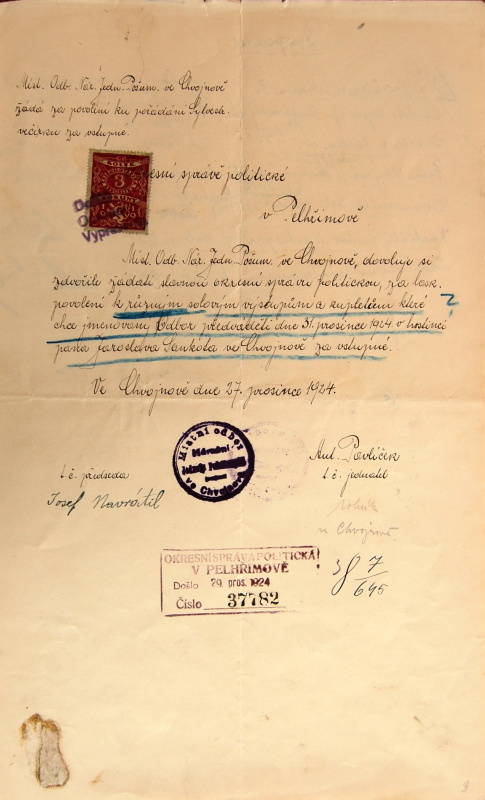 Míst. Odb. Nár. Jedn. Pošum. ve Chvojnově
žádá za povolení ku pořádání Sylvestr.
večírku za vstupné.
KOLEK
3
esní správě politické
v Pelhřimově
Míst. Odb. Nár. Jedn. Pošum. ve Chvojnově, dovoluje si
zdvořile žádati slavnou okresní správu politickou, za lask.
povolení k různým solovým výstupům a kupletům které ?
chce jmenovaný Odbor předváděti dne 31. prosince 1924 v hostinci
pana Jaroslava Sankota ve Chvojnově za vstupné.
Ve Chvojnově dne 27. prosince 1924.
Místní odbor
Národní
Jednoty Pošumavské
ve Chvojnově
Ant. Pavlíček
t. č. předseda
t. č. jednatel
Josef Navrátil
rolník
u Chvojnově.
OKRESNÍ SPRÁVA POLITICKÁ
V PELHŘIMOVĚ
Došlo 29. pros. 1924
Číslo 37782
7
645